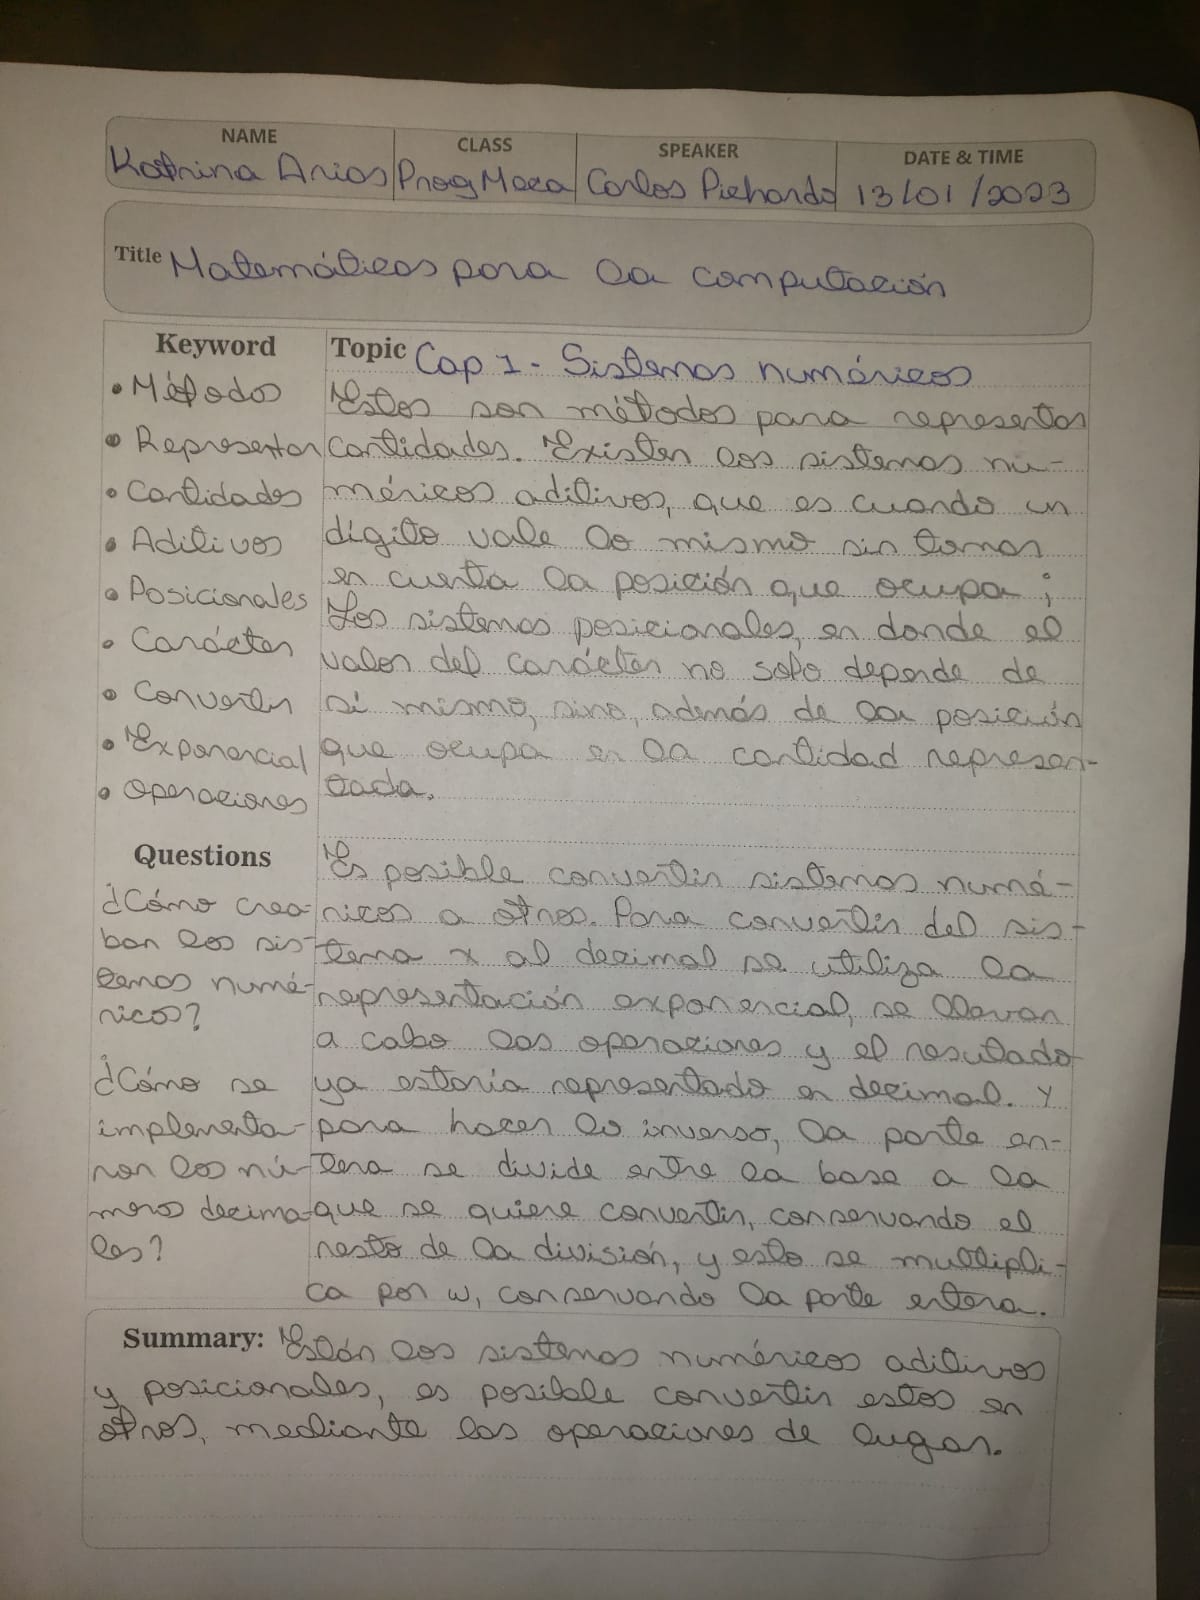 NAME CLASS SPEAKER DATE & TIME
Katrina Arias Prog Meca Carlos Pichardo 13/01/2023
Title Matemáticas para la computación
Keyword
• Métodos
• Representar
• Cantidades
• Aditivos
• Posicionales
• Carácter
• Convertir
• Exponencial
• Operaciones
Topic Cap 1 - Sistemas numéricos
Estos son métodos para representar
cantidades. Existen los sistemas nu-
méricos aditivos, que es cuando un
dígito vale lo mismo sin tomar
en cuenta la posición que ocupa;
Los sistemas posicionales, en donde el
valor del carácter no solo depende de
sí mismo, sino, además de la posición
que ocupa en la cantidad represen-
tada.
Questions
¿Cómo crea-
ban los sis-
temas numé-
ricos?
¿Cómo se
implementa-
ron los nú-
meros decima-
les?
Es posible convertir sistemas numé-
ricos a otros. Para convertir del sis-
tema x al decimal se utiliza la
representación exponencial, se llevan
a cabo las operaciones y el resultado
ya estaría representado en decimal. Y
para hacer lo inverso, la parte en-
tera se divide entre la base a la
que se quiere convertir, conservando el
resto de la división, y esto se multipli-
ca por w, conservando la parte entera.
Summary: Están los sistemas numéricos aditivos
y posicionales, es posible convertir estos en
otros, mediante las operaciones de lugar.